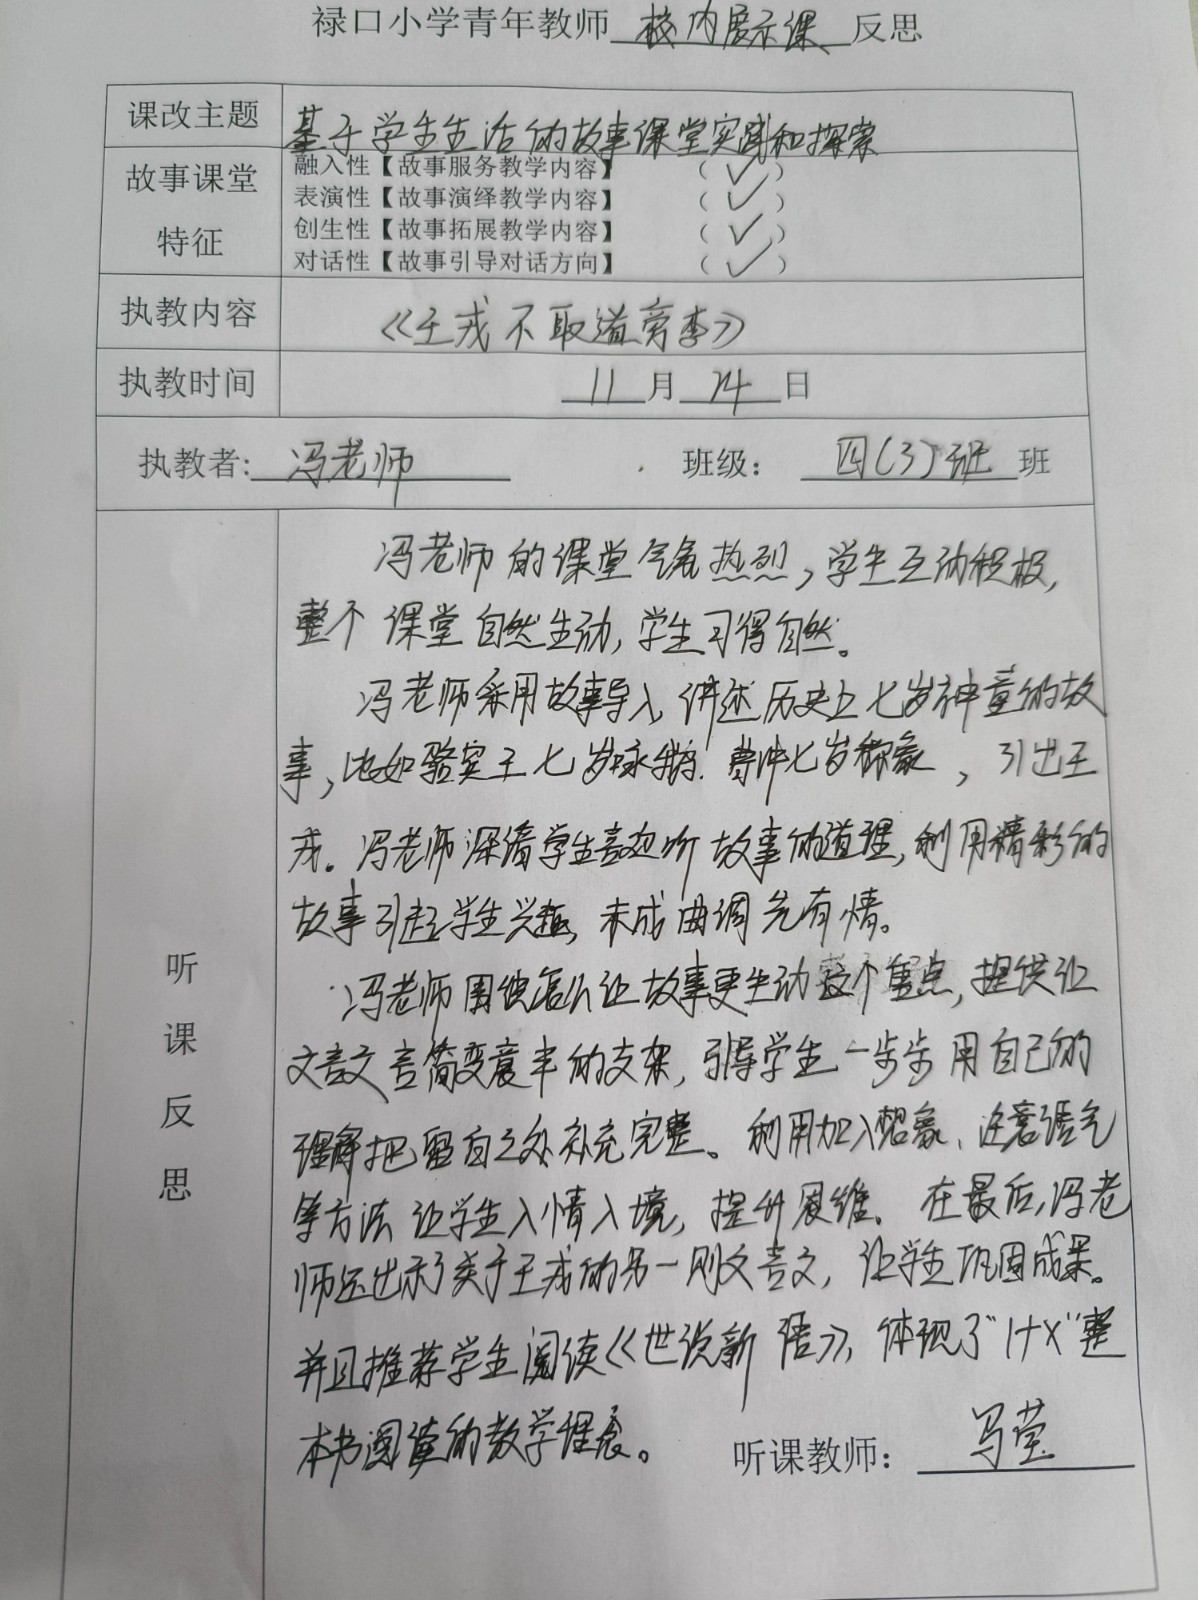 禄口小学青年教师校内展示课反思
课改主题 基于学生生活的故事课堂实践和探索
故事课堂特征
融入性【故事服务教学内容】 （✓）
表演性【故事演绎教学内容】 （✓）
创生性【故事拓展教学内容】 （✓）
对话性【故事引导对话方向】 （✓）
执教内容 《王戎不取道旁李》
执教时间 11月14日
执教者：冯老师 班级：四（3）班班
听课反思
冯老师的课堂气氛热烈，学生互动积极，
整个课堂自然生动，学生习得自然。
冯老师采用故事导入，讲述历史上七岁神童的故
事，比如骆宾王七岁咏鹅、曹冲七岁称象，引出王
戎。冯老师深谙学生喜欢听故事的道理，利用精彩的
故事引起学生兴趣，未成曲调先有情。
冯老师围绕怎么让故事更生动这个重点，提供让
文言文言简变意丰的支架，引导学生一步步用自己的
理解把留白之处补充完整。利用加入想象、注意语气
等方法让学生入情入境，提升思维。在最后，冯老
师还出示了关于王戎的另一则文言文，让学生巩固成果。
并且推荐学生阅读《世说新语》，体现了“1+X”整
本书阅读的教学理念。
听课教师：冯莹